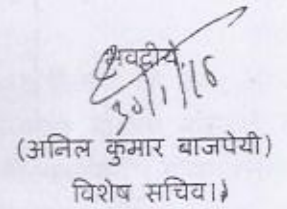 भवदीय,
30/1/16
(अनिल कुमार बाजपेयी)
विशेष सचिव।